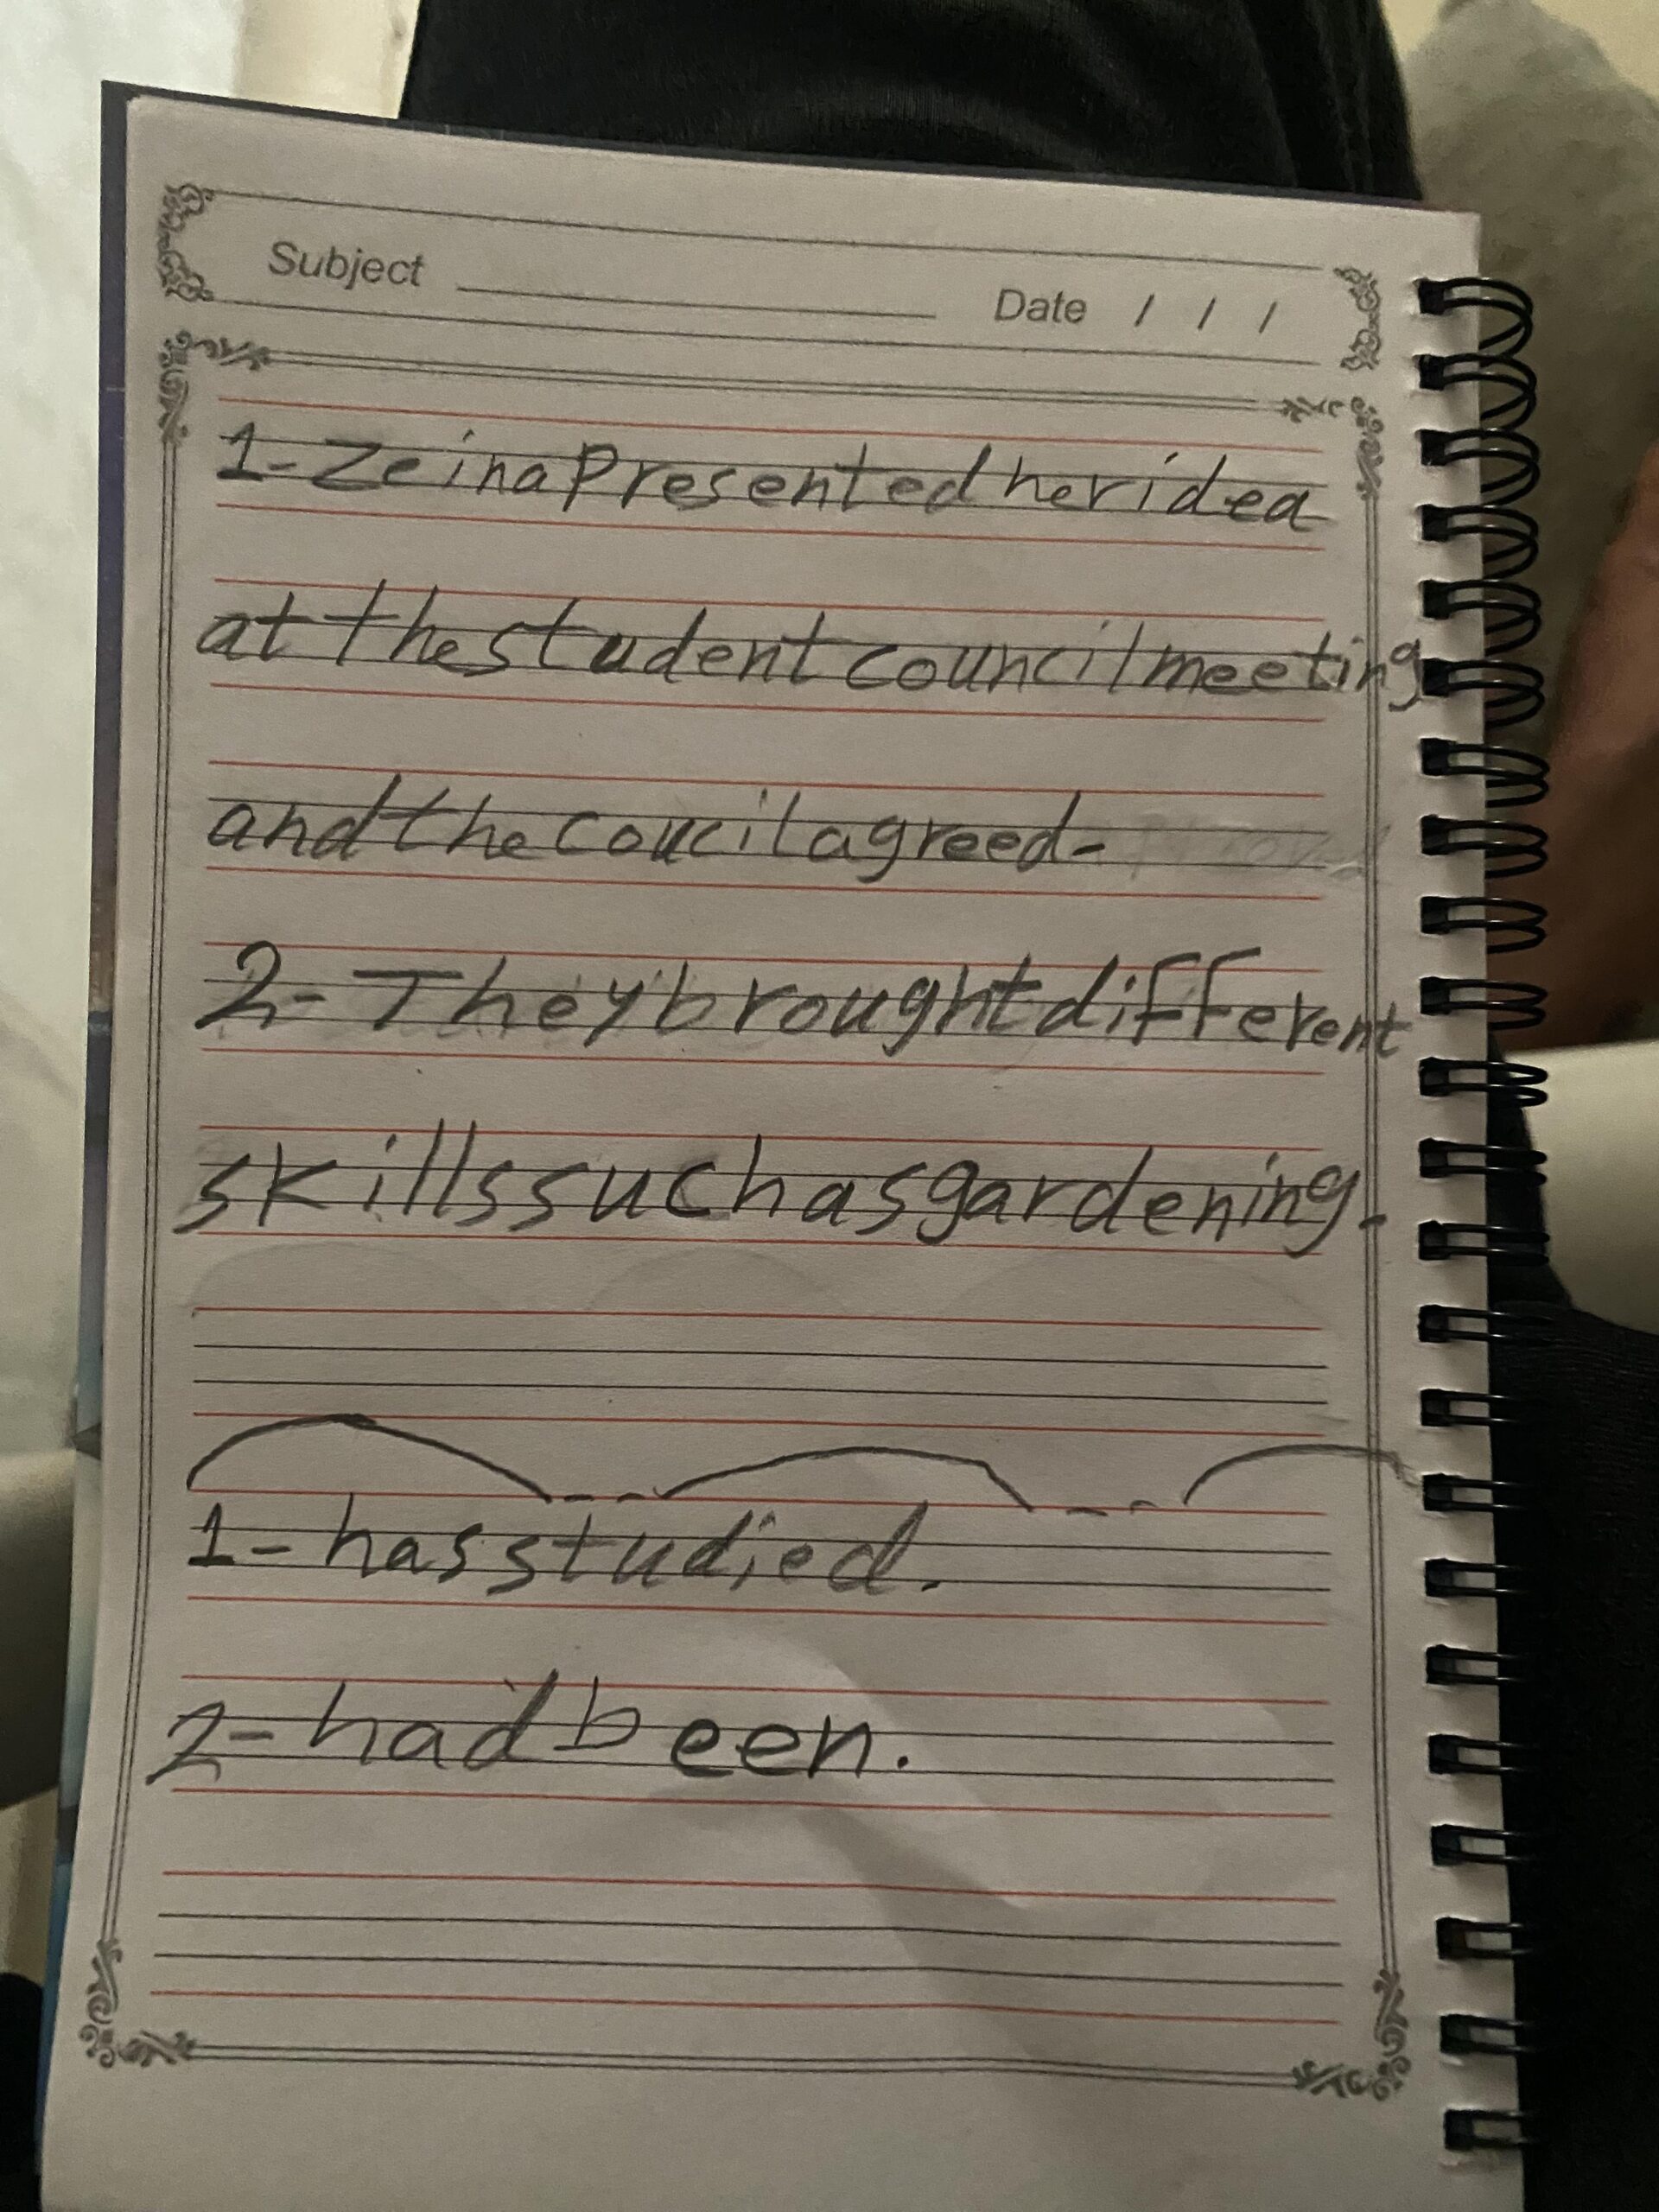 Subject
Date / / /
1- Zeina Presented her idea
at the student council meeting
and the coucil agreed-
2- They brought different
skills such as gardening.
1- has studied.
2- had been.